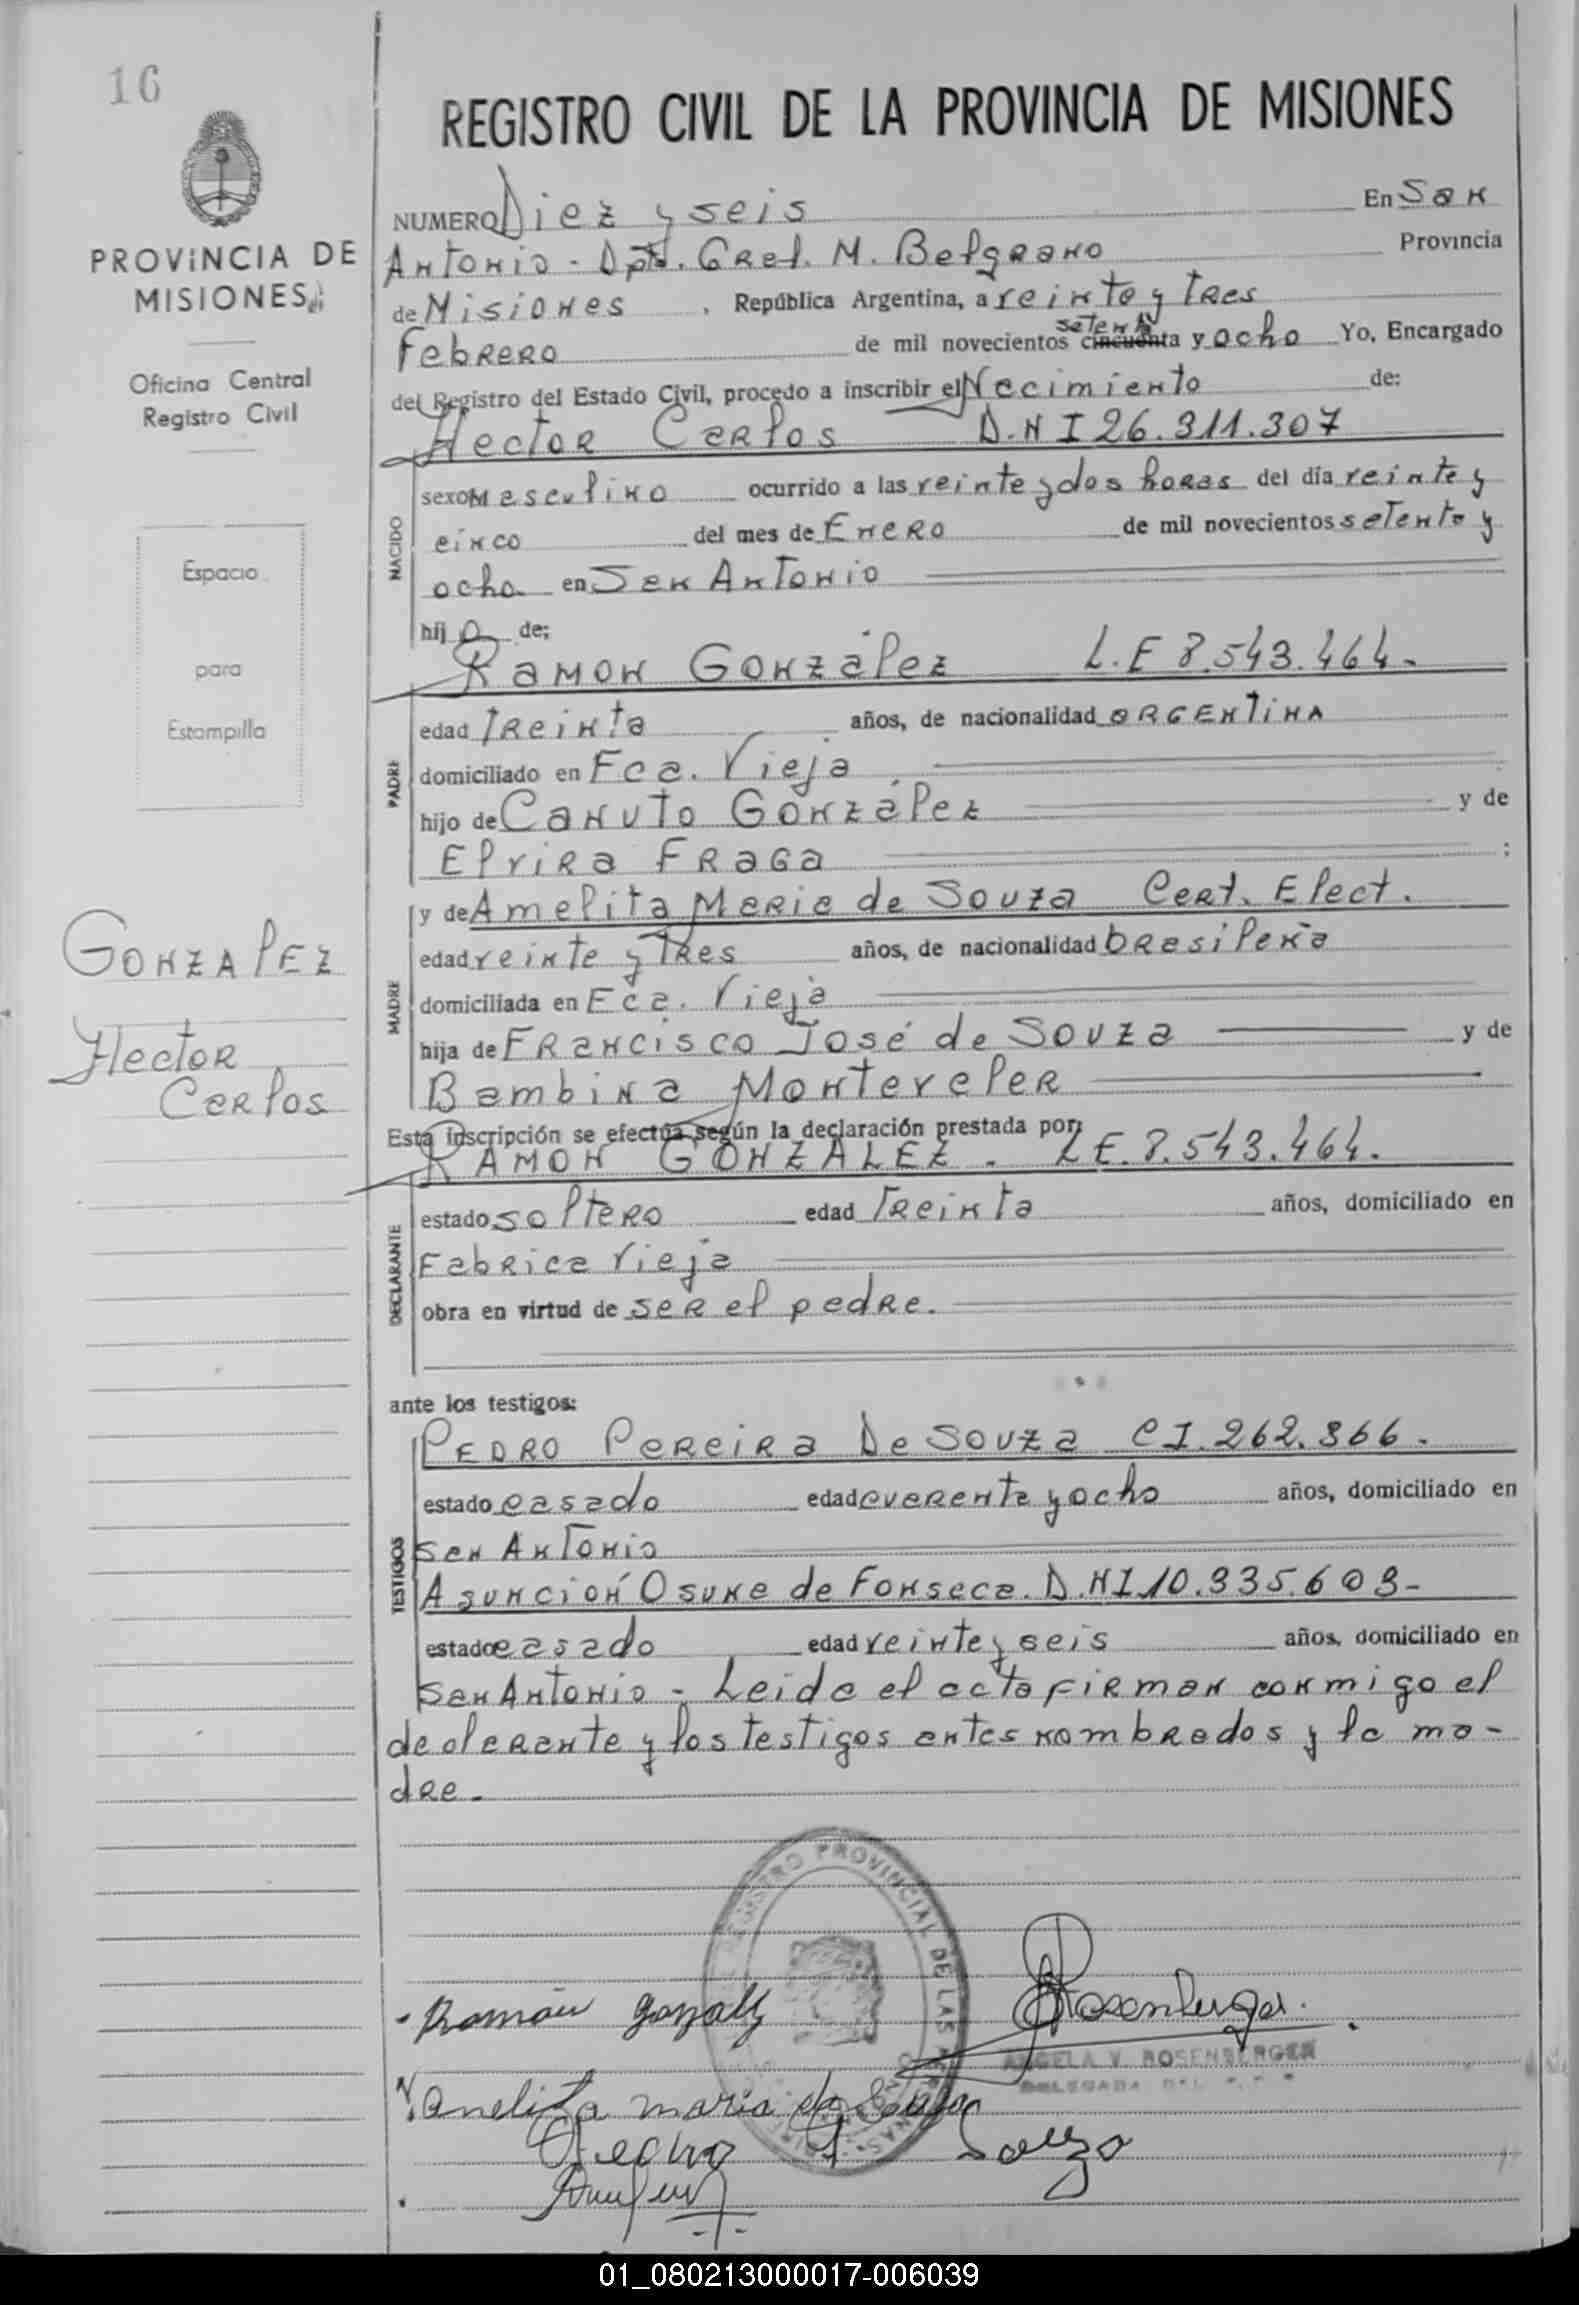 16
REGISTRO CIVIL DE LA PROVINCIA DE MISIONES
PROVINCIA DE
MISIONES
Oficina Central
Registro Civil
Espacio
para
Estampilla
GONZALEZ
Hector
Carlos
NUMERO Diez y seis En San
Antonio - Dpto. Gral. M. Belgrano Provincia
de Misiones , República Argentina, a veinte y tres
Febrero de mil novecientos cincuenta setenta y ocho Yo, Encargado
del Registro del Estado Civil, procedo a inscribir el Nacimiento de:
Hector Carlos D.N I 26.311.307
NACIDO
sexo Masculino ocurrido a las veinte y dos horas del día veinte y
cinco del mes de Enero de mil novecientos setenta y
ocho en San Antonio
hijo de:
Ramon González L.E 8.543.464.
PADRE
edad Treinta años, de nacionalidad argentina
domiciliado en Fca. Vieja
hijo de Canuto González y de
Elvira Fraga ;
MADRE
y de Amelita Maria de Souza Cert. Elect.
edad veinte y Tres años, de nacionalidad brasileña
domiciliada en Fca. Vieja
hija de Francisco José de Souza y de
Bambina
Esta inscripción se efectúa según la declaración prestada por:
RAMON GONZALEZ. L E. 8.543.464.
DECLARANTE
estado soltero edad Treinta años, domiciliado en
Fabrica Vieja
obra en virtud de ser el padre.
ante los testigos:
TESTIGOS
PEDRO Pereira De Souza C I. 262.366.
estado casado edad cuarenta y ocho años, domiciliado en
San Antonio
Asunción Osuna de Fonseca. D.N I 10.335.603-
estado casado edad veinte y seis años, domiciliado en
San Antonio - Leida el acta firman conmigo el
declarante y los testigos antes nombrados y la ma-
dre.
REGISTRO PROVINCIAL DE LAS PERSONAS
Ramón Gonzalez
Rosenberger.
ANGELA V. ROSENBERGER
DELEGADA
Amelita maria de Souza
Pedro P Souza
01_080213000017-006039